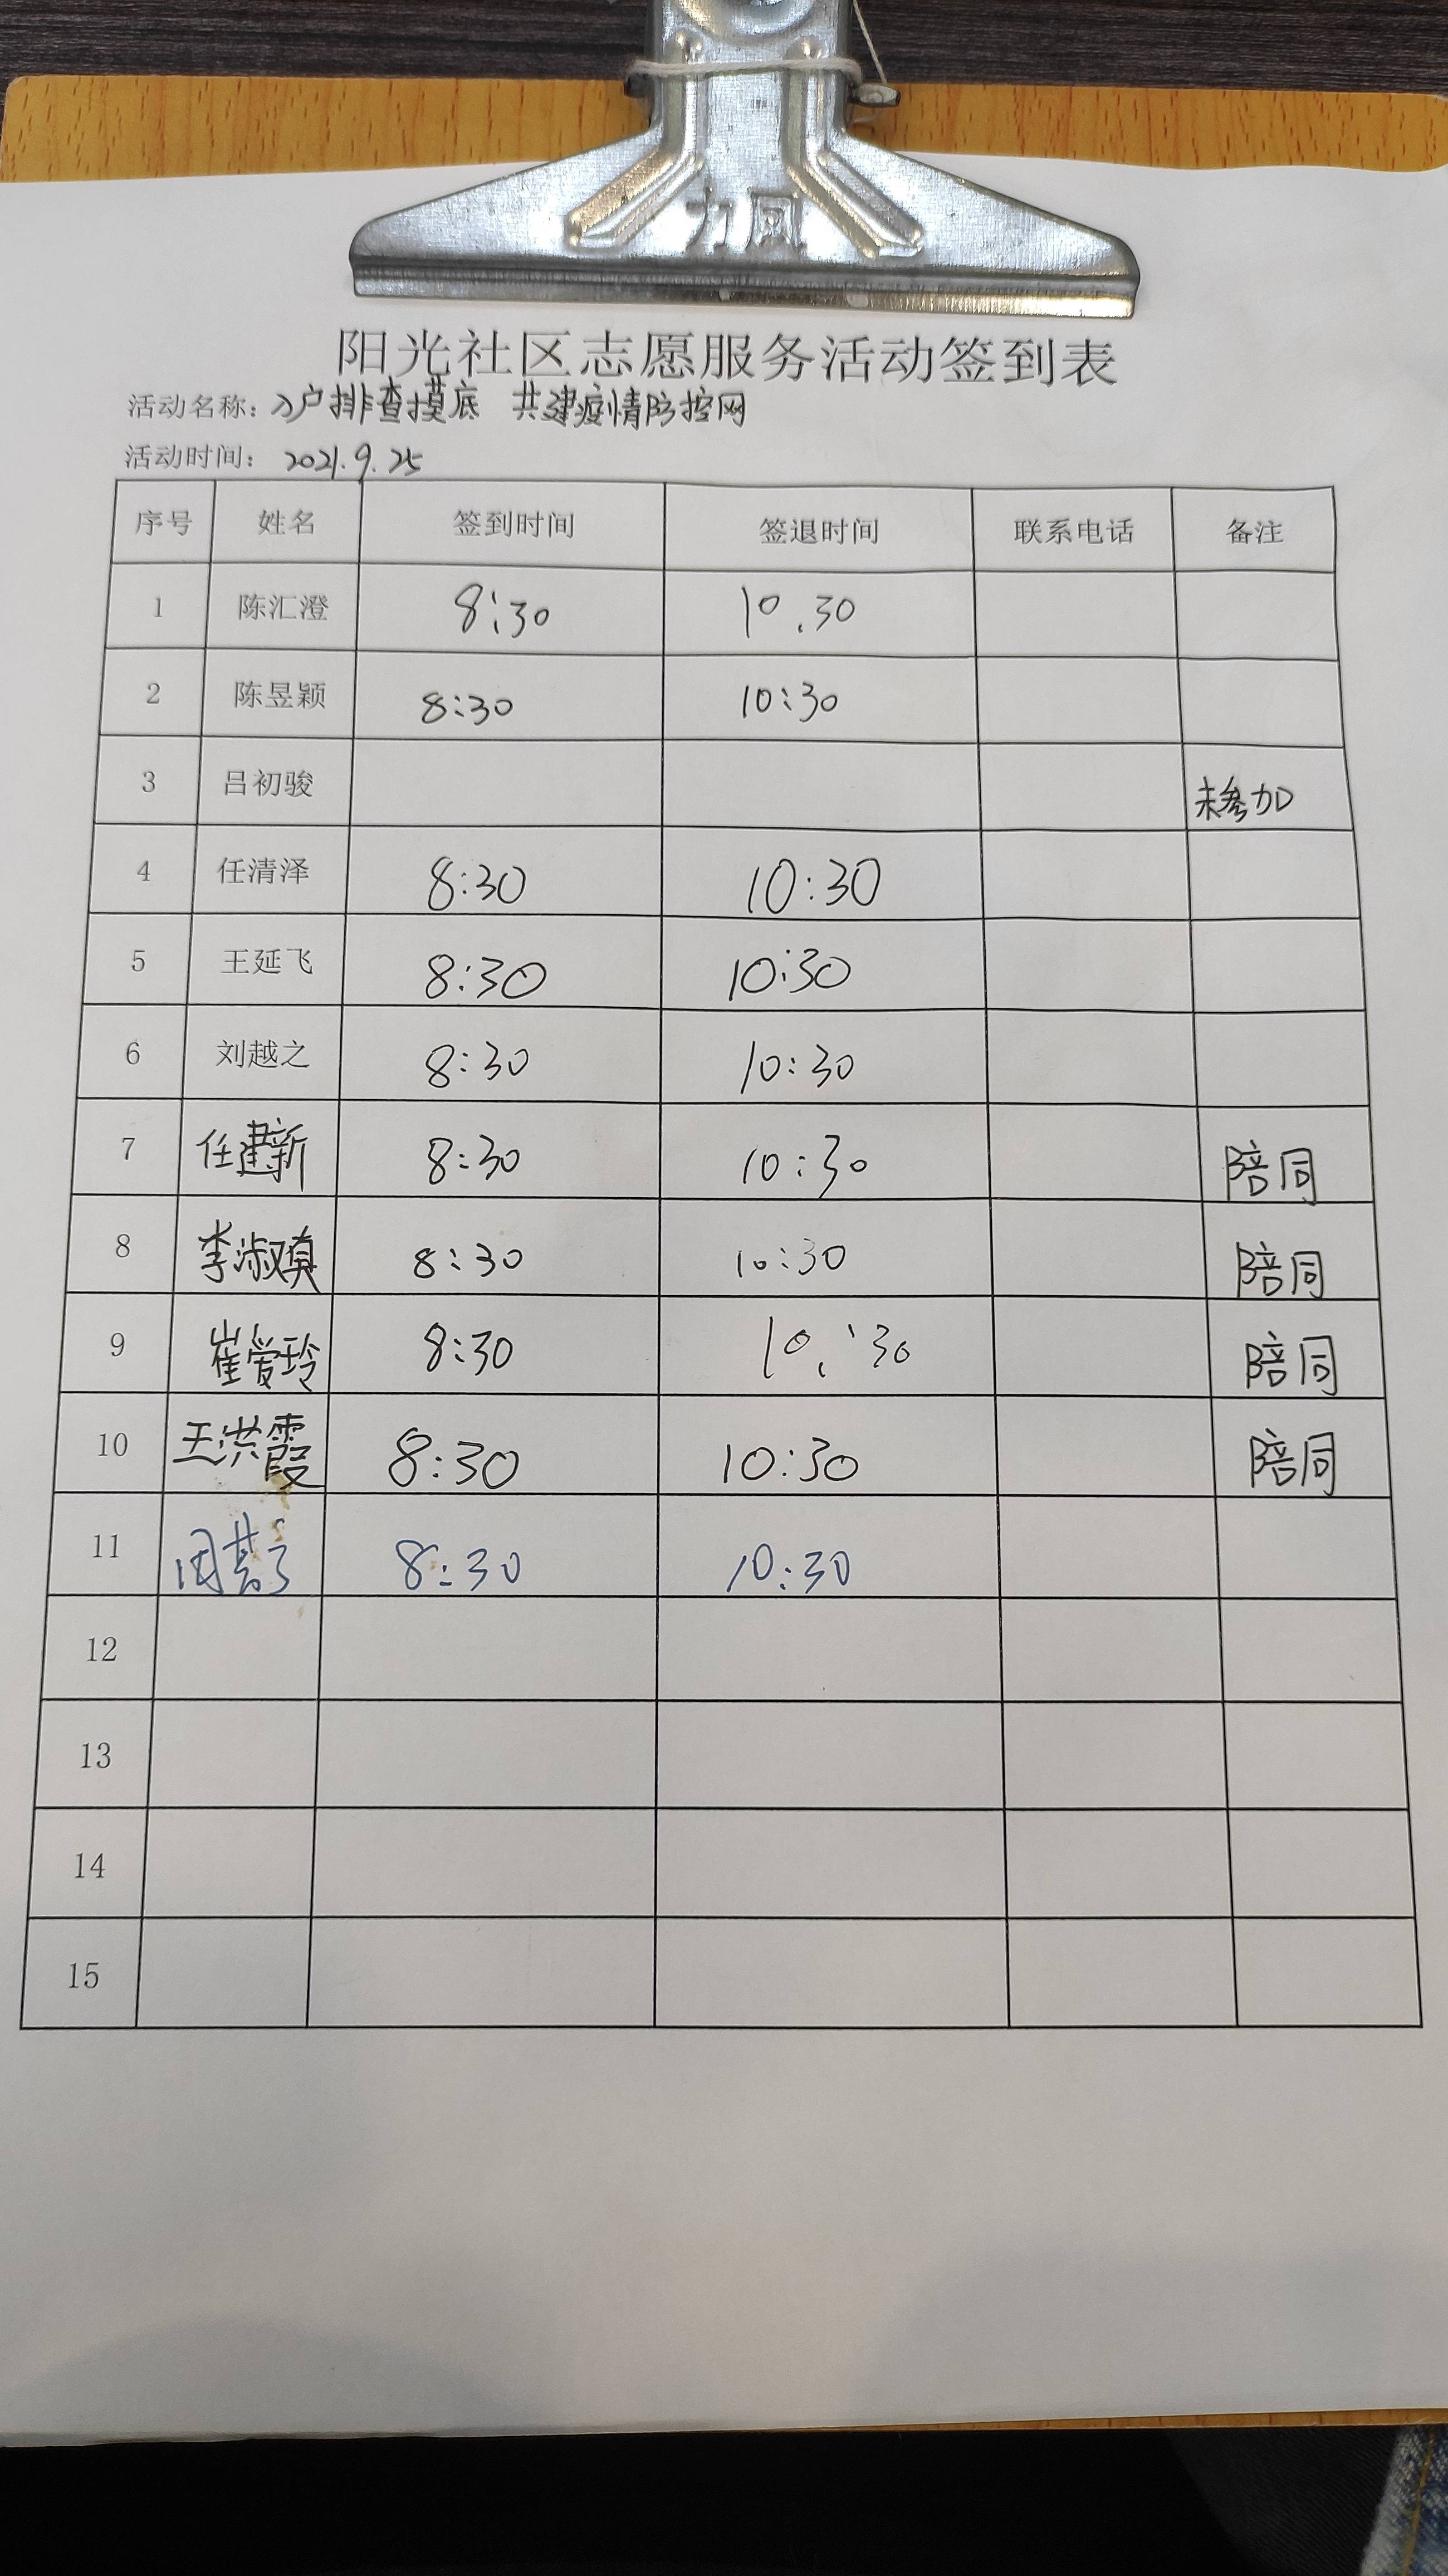 力同
阳光社区志愿服务活动签到表
活动名称: 入户排查摸底 共建疫情防控网
活动时间: 2021.9.25
序号 姓名 签到时间 签退时间 联系电话 备注
1 陈汇澄 8:30 10.30
2 陈昱颖 8:30 10:30
3 吕初骏 未参加
4 任清泽 8:30 10:30
5 王延飞 8:30 10:30
6 刘越之 8:30 10:30
7 任建新 8:30 10:30 陪同
8 李淑真 8:30 10:30 陪同
9 崔爱玲 8:30 10:30 陪同
10 王洪霞 8:30 10:30 陪同
11 8:30 10:30
12
13
14
15